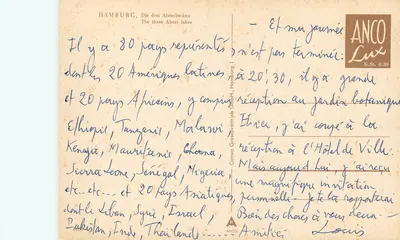 HAMBURG, Die drei Alsterbecken
The three Alster lakes
Il y a 80 pays représentés
dont les 20 Amériques latines
et 20 pays Africains, y compris
Ethiopie, Tanzanie, Malawi
Kenya, Mauritanie, Ghana,
Sierra Leone, Sénégal, Nigeria,
etc... etc... et 20 pays Asiatiques,
dont le Liban, Syrie, Israël,
Pakistan, Inde, Thaïlande
- Et ma journée
n'est pas terminée:
à 20'30, il y a grande
réception au jardin botanique
Hier, j'ai coupé à la
réception à l'Hôtel de Ville.
Mais aujourd'hui, j'ai reçu
une magnifique invitation
personnelle - je te la rapporterai
Bien des choses à vous deux -
Amitié Louis
ANCO
Lux